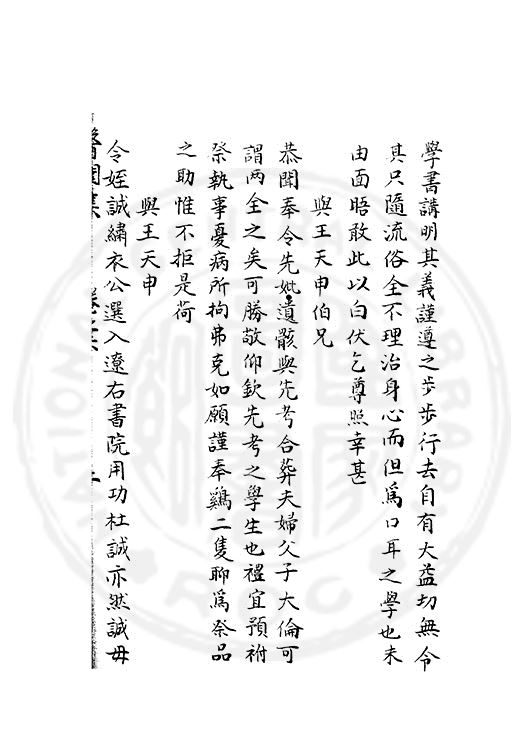 學書講明其義謹遵之步步行去自有大益切無令
其只隨流俗全不理治身心而但爲口耳之學也未
由面晤敢此以白伏乞尊照幸甚
與王天申伯兄
恭聞奉令先妣遺骸與先考合葬夫婦父子大倫可
謂两全之矣可勝敬仰欽先考之學生也禮宜預祔
祭執事憂病所拘弗克如願謹奉鷄二隻聊爲祭品
之助惟不拒是荷
與王天申
令姪誠繡衣公選入遼右書院用功杜誠亦然誠毋
醫閭集